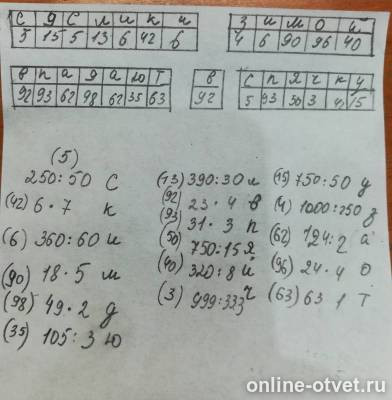 с у с л и к и
5 15 5 13 6 42 6
з и м о й
4 6 90 96 40
в п а д а ю т
92 93 62 98 62 35 63
в
92
с п я ч к у
5 93 50 3 42 15
(5)
250:50 с
(42) 6·7 к
(6) 360:60 и
(90) 18·5 м
(98) 49·2 д
(35) 105:3 ю
(13) 390:30 л
(92) 23·4 в
(93) 31·3 п
(50) 750:15 я
(40) 320:8 й
(3) 999:333 ч
(15) 750:50 у
(4) 1000:250 з
(62) 124:2 а
(96) 24·4 о
(63) 63 1 т
online-otvet.ru